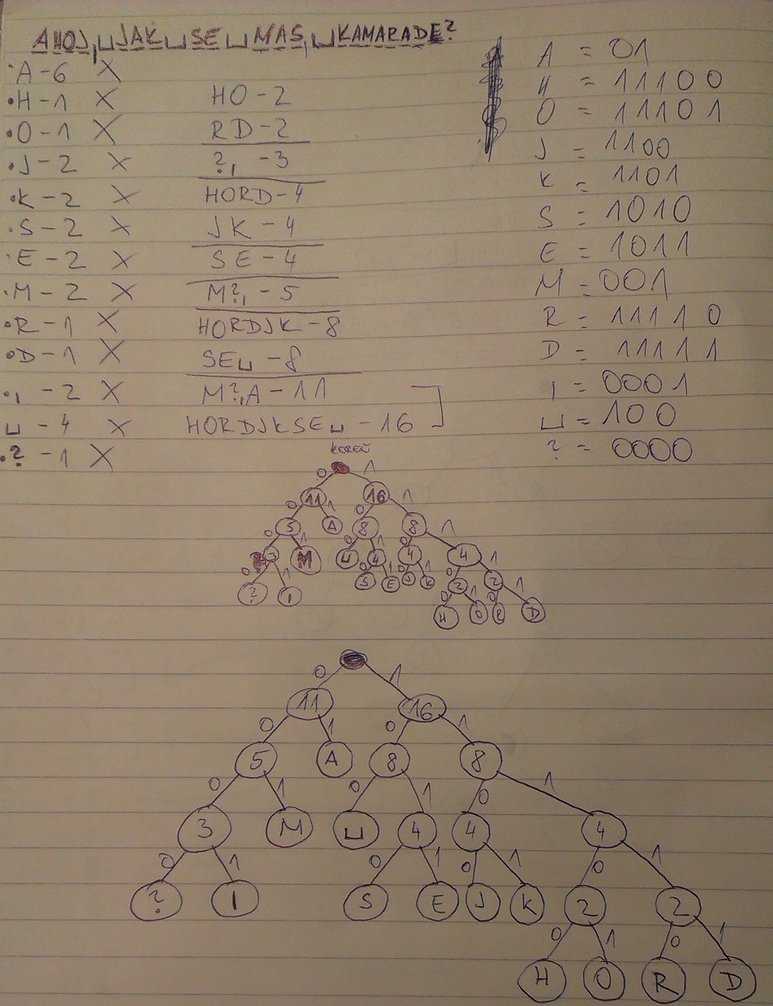 AHOJ,␣JAK␣SE␣MAS,␣KAMARADE?
·A-6 X
·H-1 X
·O-1 X
·J-2 X
·K-2 X
·S-2 X
·E-2 X
·M-2 X
·R-1 X
·D-1 X
·, -2 X
␣ -4 X
·? -1 X
HO-2
RD-2
?, -3
HORD-4
JK-4
SE-4
M?, -5
HORDJK-8
SE␣ -8
M?,A-11
HORDJKSE␣ -16
A = 01
H = 11100
O = 11101
J = 1100
K = 1101
S = 1010
E = 1011
M = 001
R = 11110
D = 11111
, = 0001
␣ = 100
? = 0000
KOREŇ
0 1
11 16
0 1 0 1
5 A 8 8
0 1 0 1 0 1
3 M ␣ 4 4 4
0 1 0 1 0 1 0 1
? , S E J K 2 2
0 1 0 1
H O R D
0 1
11 16
0 1 0 1
5 A 8 8
0 1 0 1 0 1
3 M ␣ 4 4 4
0 1 0 1 0 1 0 1
? , S E J K 2 2
0 1 0 1
H O R D